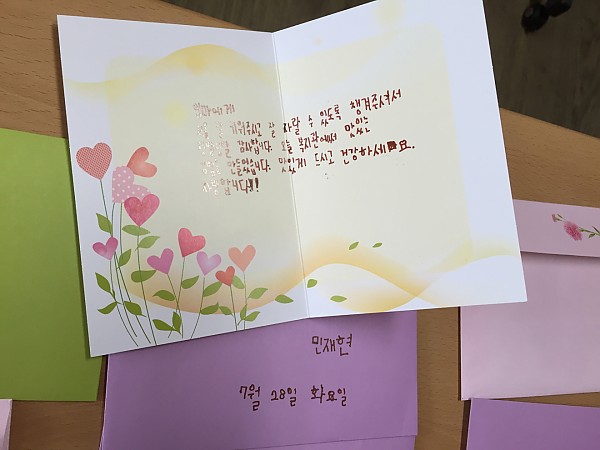 키워주시고 잘 자랄 수 있도록 챙겨주셔서
감사합니다. 오늘 복지관에서 맛있는
만들었습니다. 맛있게 드시고 건강하세요.
민재현
7월 28일 화요일